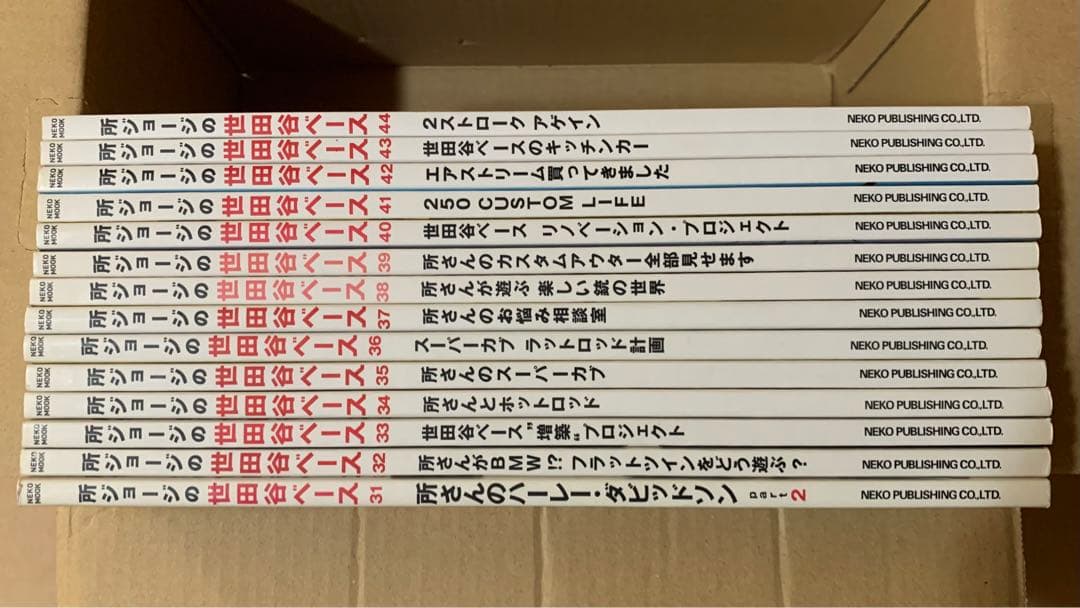 NEKO MOOK 所ジョージの世田谷ベース 44 2ストローク アゲイン NEKO PUBLISHING CO.,LTD.
NEKO MOOK 所ジョージの世田谷ベース 43 世田谷ベースのキッチンカー NEKO PUBLISHING CO.,LTD.
NEKO MOOK 所ジョージの世田谷ベース 42 エアストリーム買ってきました NEKO PUBLISHING CO.,LTD.
NEKO MOOK 所ジョージの世田谷ベース 41 250 CUSTOM LIFE NEKO PUBLISHING CO.,LTD.
NEKO MOOK 所ジョージの世田谷ベース 40 世田谷ベース リノベーション・プロジェクト NEKO PUBLISHING CO.,LTD.
NEKO MOOK 所ジョージの世田谷ベース 39 所さんのカスタムアウター全部見せます NEKO PUBLISHING CO.,LTD.
NEKO MOOK 所ジョージの世田谷ベース 38 所さんが遊ぶ楽しい銃の世界 NEKO PUBLISHING CO.,LTD.
NEKO MOOK 所ジョージの世田谷ベース 37 所さんのお悩み相談室 NEKO PUBLISHING CO.,LTD.
NEKO MOOK 所ジョージの世田谷ベース 36 スーパーカブ ラットロッド計画 NEKO PUBLISHING CO.,LTD.
NEKO MOOK 所ジョージの世田谷ベース 35 所さんのスーパーカブ NEKO PUBLISHING CO.,LTD.
NEKO MOOK 所ジョージの世田谷ベース 34 所さんとホットロッド NEKO PUBLISHING CO.,LTD.
NEKO MOOK 所ジョージの世田谷ベース 33 世田谷ベース"増築"プロジェクト NEKO PUBLISHING CO.,LTD.
NEKO MOOK 所ジョージの世田谷ベース 32 所さんがBMW!? フラットツインをどう遊ぶ? NEKO PUBLISHING CO.,LTD.
NEKO MOOK 所ジョージの世田谷ベース 31 所さんのハーレー・ダビッドソン part 2 NEKO PUBLISHING CO.,LTD.